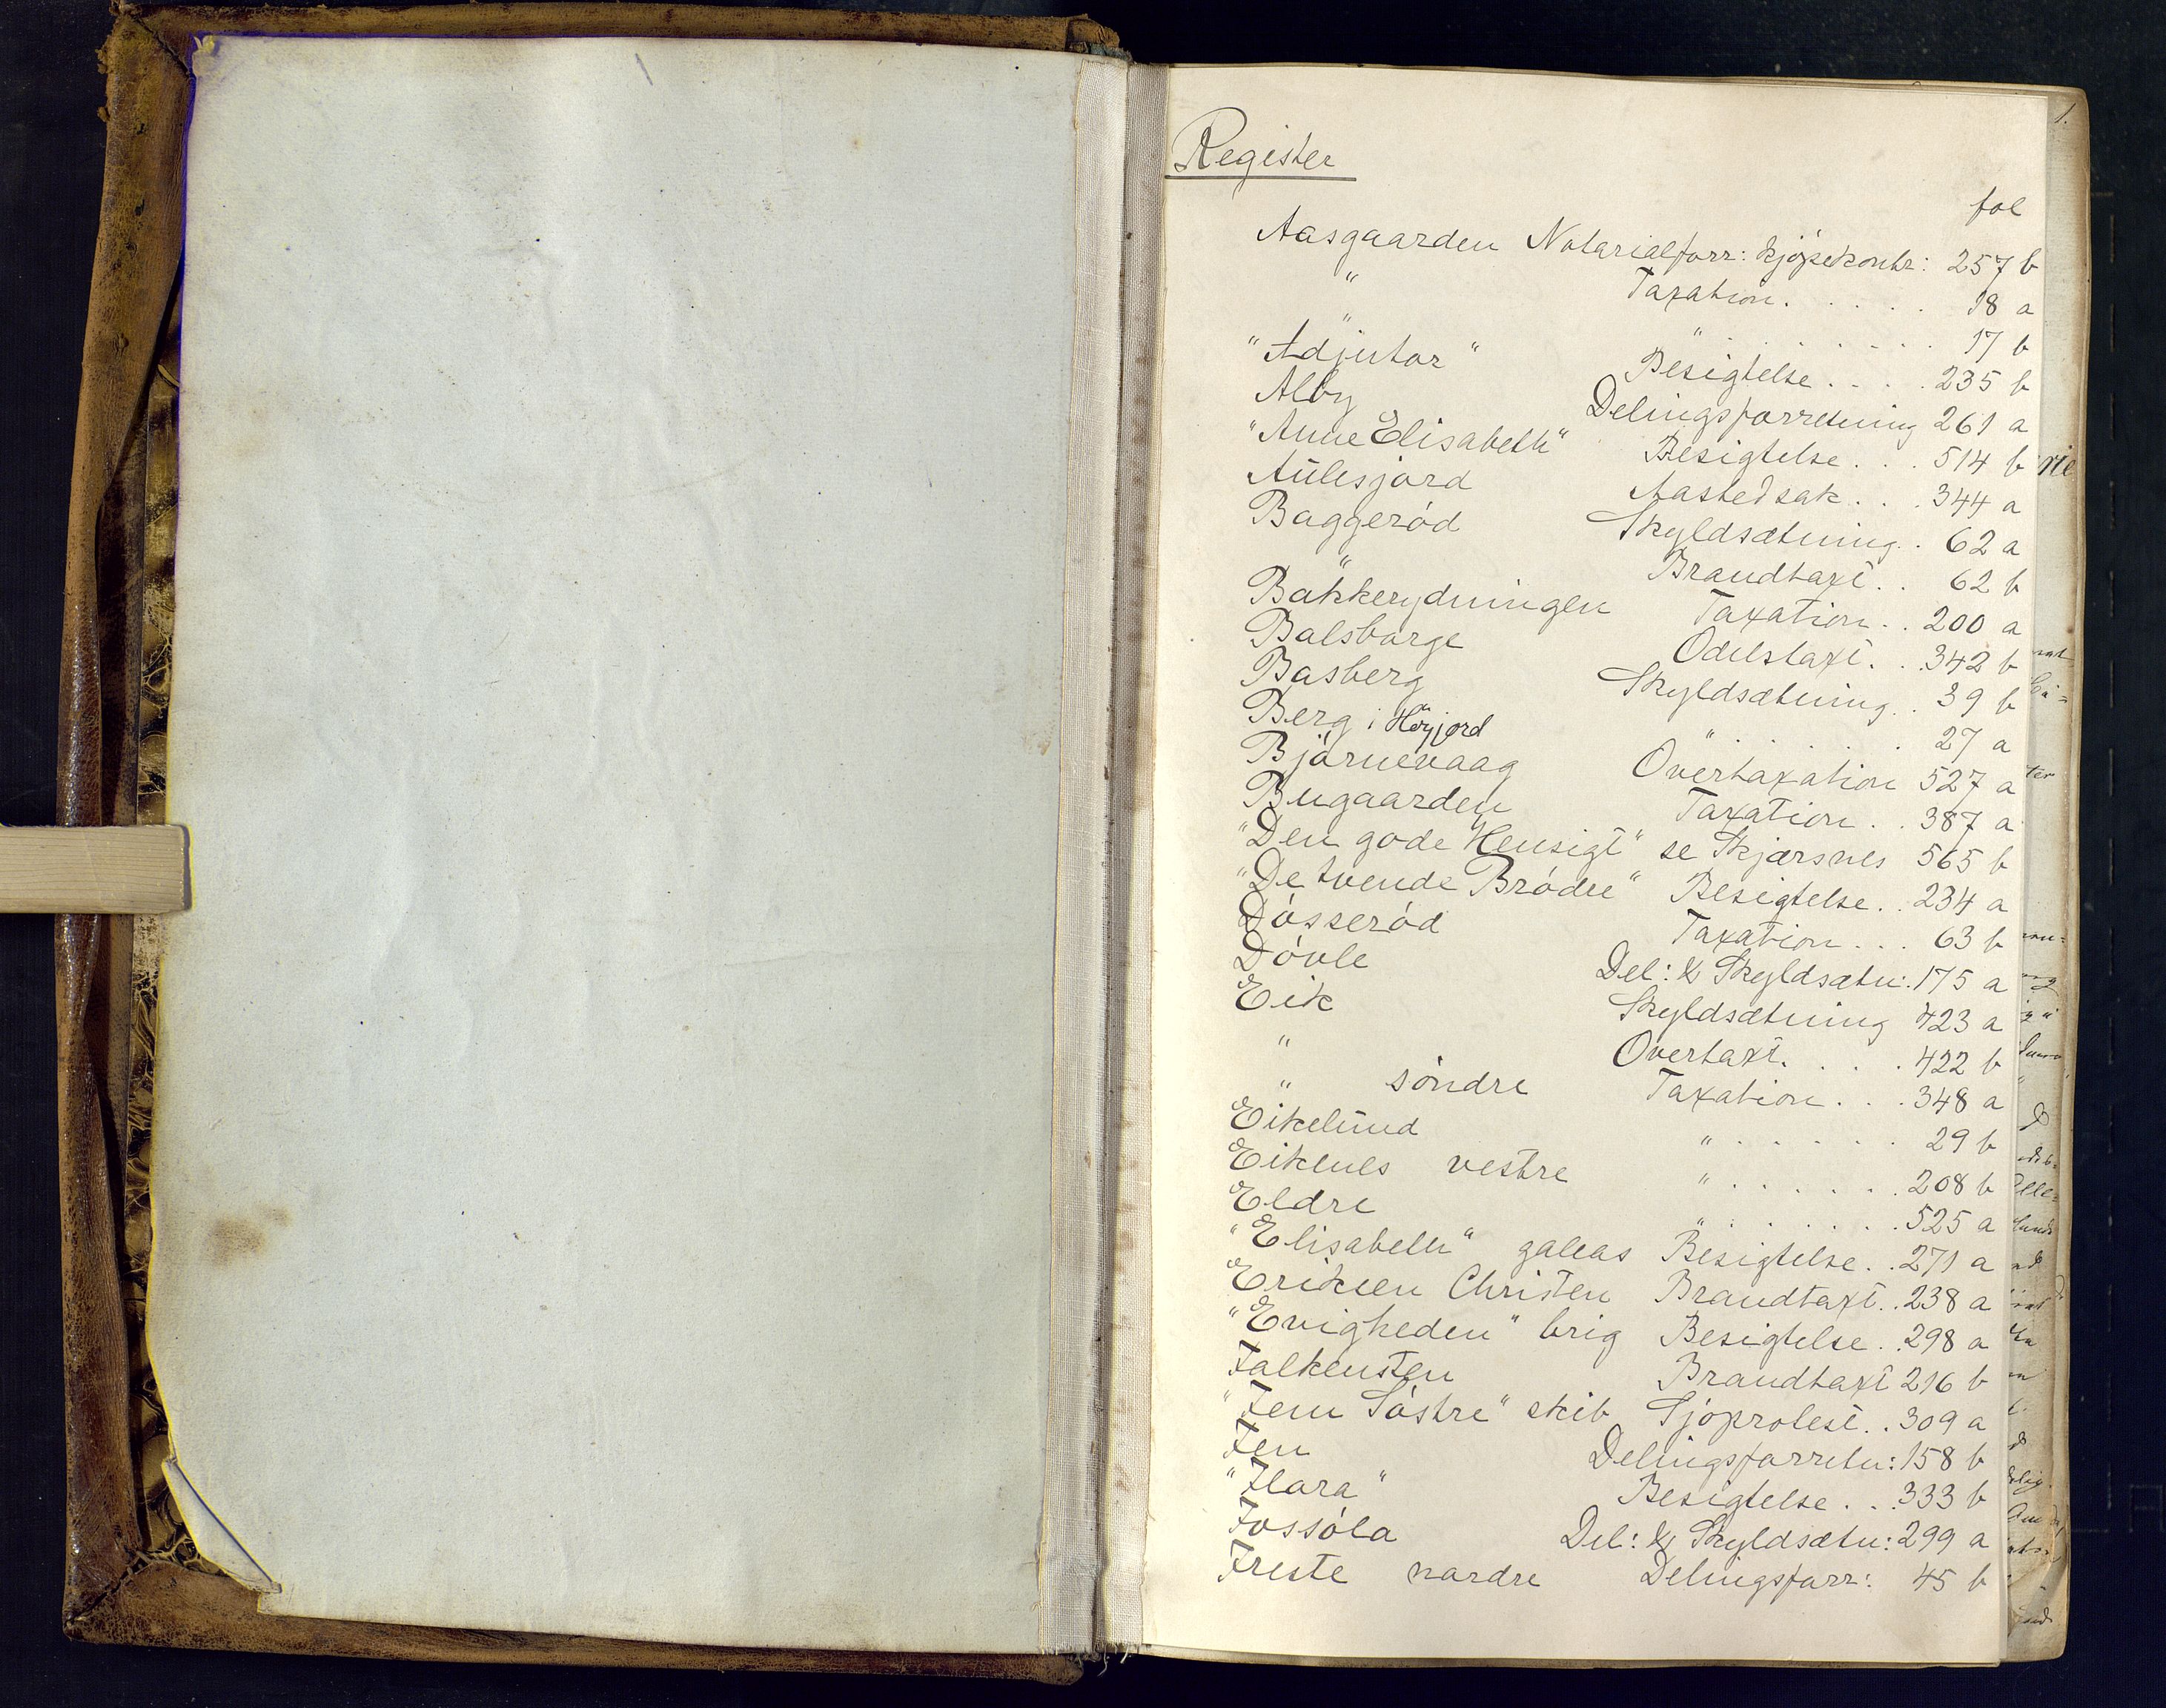 Register
fol
Aasgaarden Notarialforr: kjöpekontr: 257 b
" Taxation. . . . . 18 a
" " . . . . . . . 17 b
"Adjutor" Besigtelse . . . . 235 b
Alby Delingsforretning 261 a
"Anne Elisabeth" Besigtelse . . . 514 b
Aulesjord Aastedsak . . . 344 a
Baggeröd Skyldsætning . . 62 a
" Brandtaxt . . 62 b
Bakkerydningen Taxation . . 200 a
Balsborge Odelstaxt. . . 342 b
Basberg Skyldsætning . . 39 b
Berg i Höyjord " . . . . . . 27 a
Björnevaag Overtaxation 527 a
Bugaarden Taxation . . 387 a
"Den gode Hensigt" se Skjærsnes 565 b
"De tvende Brödre" Besigtelse . . 234 a
Dösseröd Taxation . . . 63 b
Dövle Del: & Skyldsætn: 175 a
Eik Skyldsætning 423 a
" Overtaxt. . . . . 422 b
" söndre Taxation . . . 348 a
Eikelund " . . . . . . 29 b
Eikenes vestre " . . . . . . 208 b
Eldre " . . . . . . . 525 a
"Elisabeth" galeas Besigtelse . . 271 a
Eriksen Christen Brandtaxt . . 238 a
"Evigheden" brig Besigtelse . . 298 a
Falkensten Brandtaxt 216 b
"Fem Söstre" skib Sjöprotest . . 309 a
Fen Delingsforretn: 158 b
"Flora" Besigtelse . . . 333 b
Fossöla Del: & Skyldsætn: 299 a
Freste nordre Delingsforr: 45 b
1.